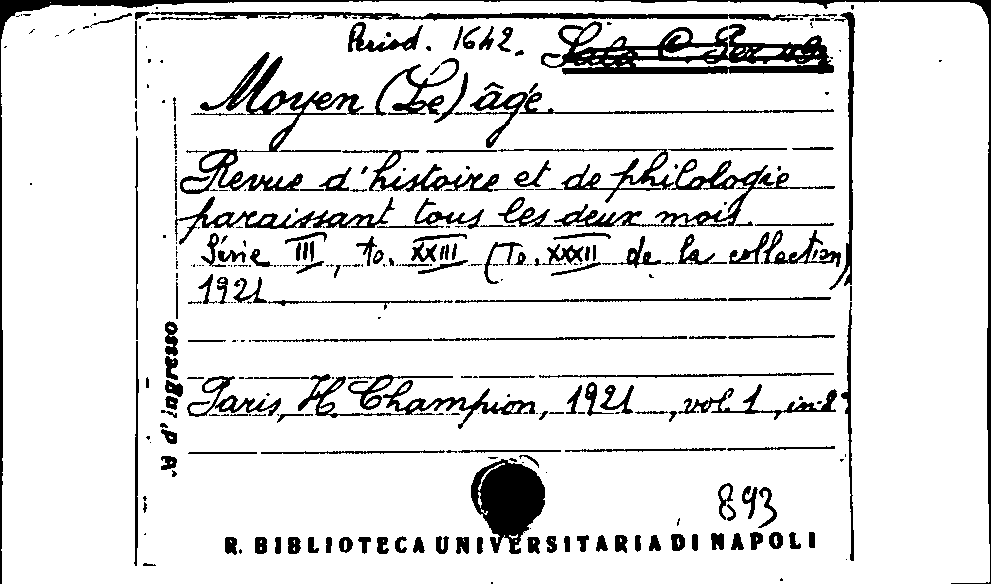 Period. 1642. Sala C. Per.
Moyen (Le) âge.
Revue d'histoire et de philologie
paraissant tous les deux mois.
Série III, to. XXIII (To. XXXII de la collection),
1921.
Paris, H. Champion, 1921, vol. 1, in-8º
N. d'ingresso
893
R. BIBLIOTECA UNIVERSITARIA DI NAPOLI